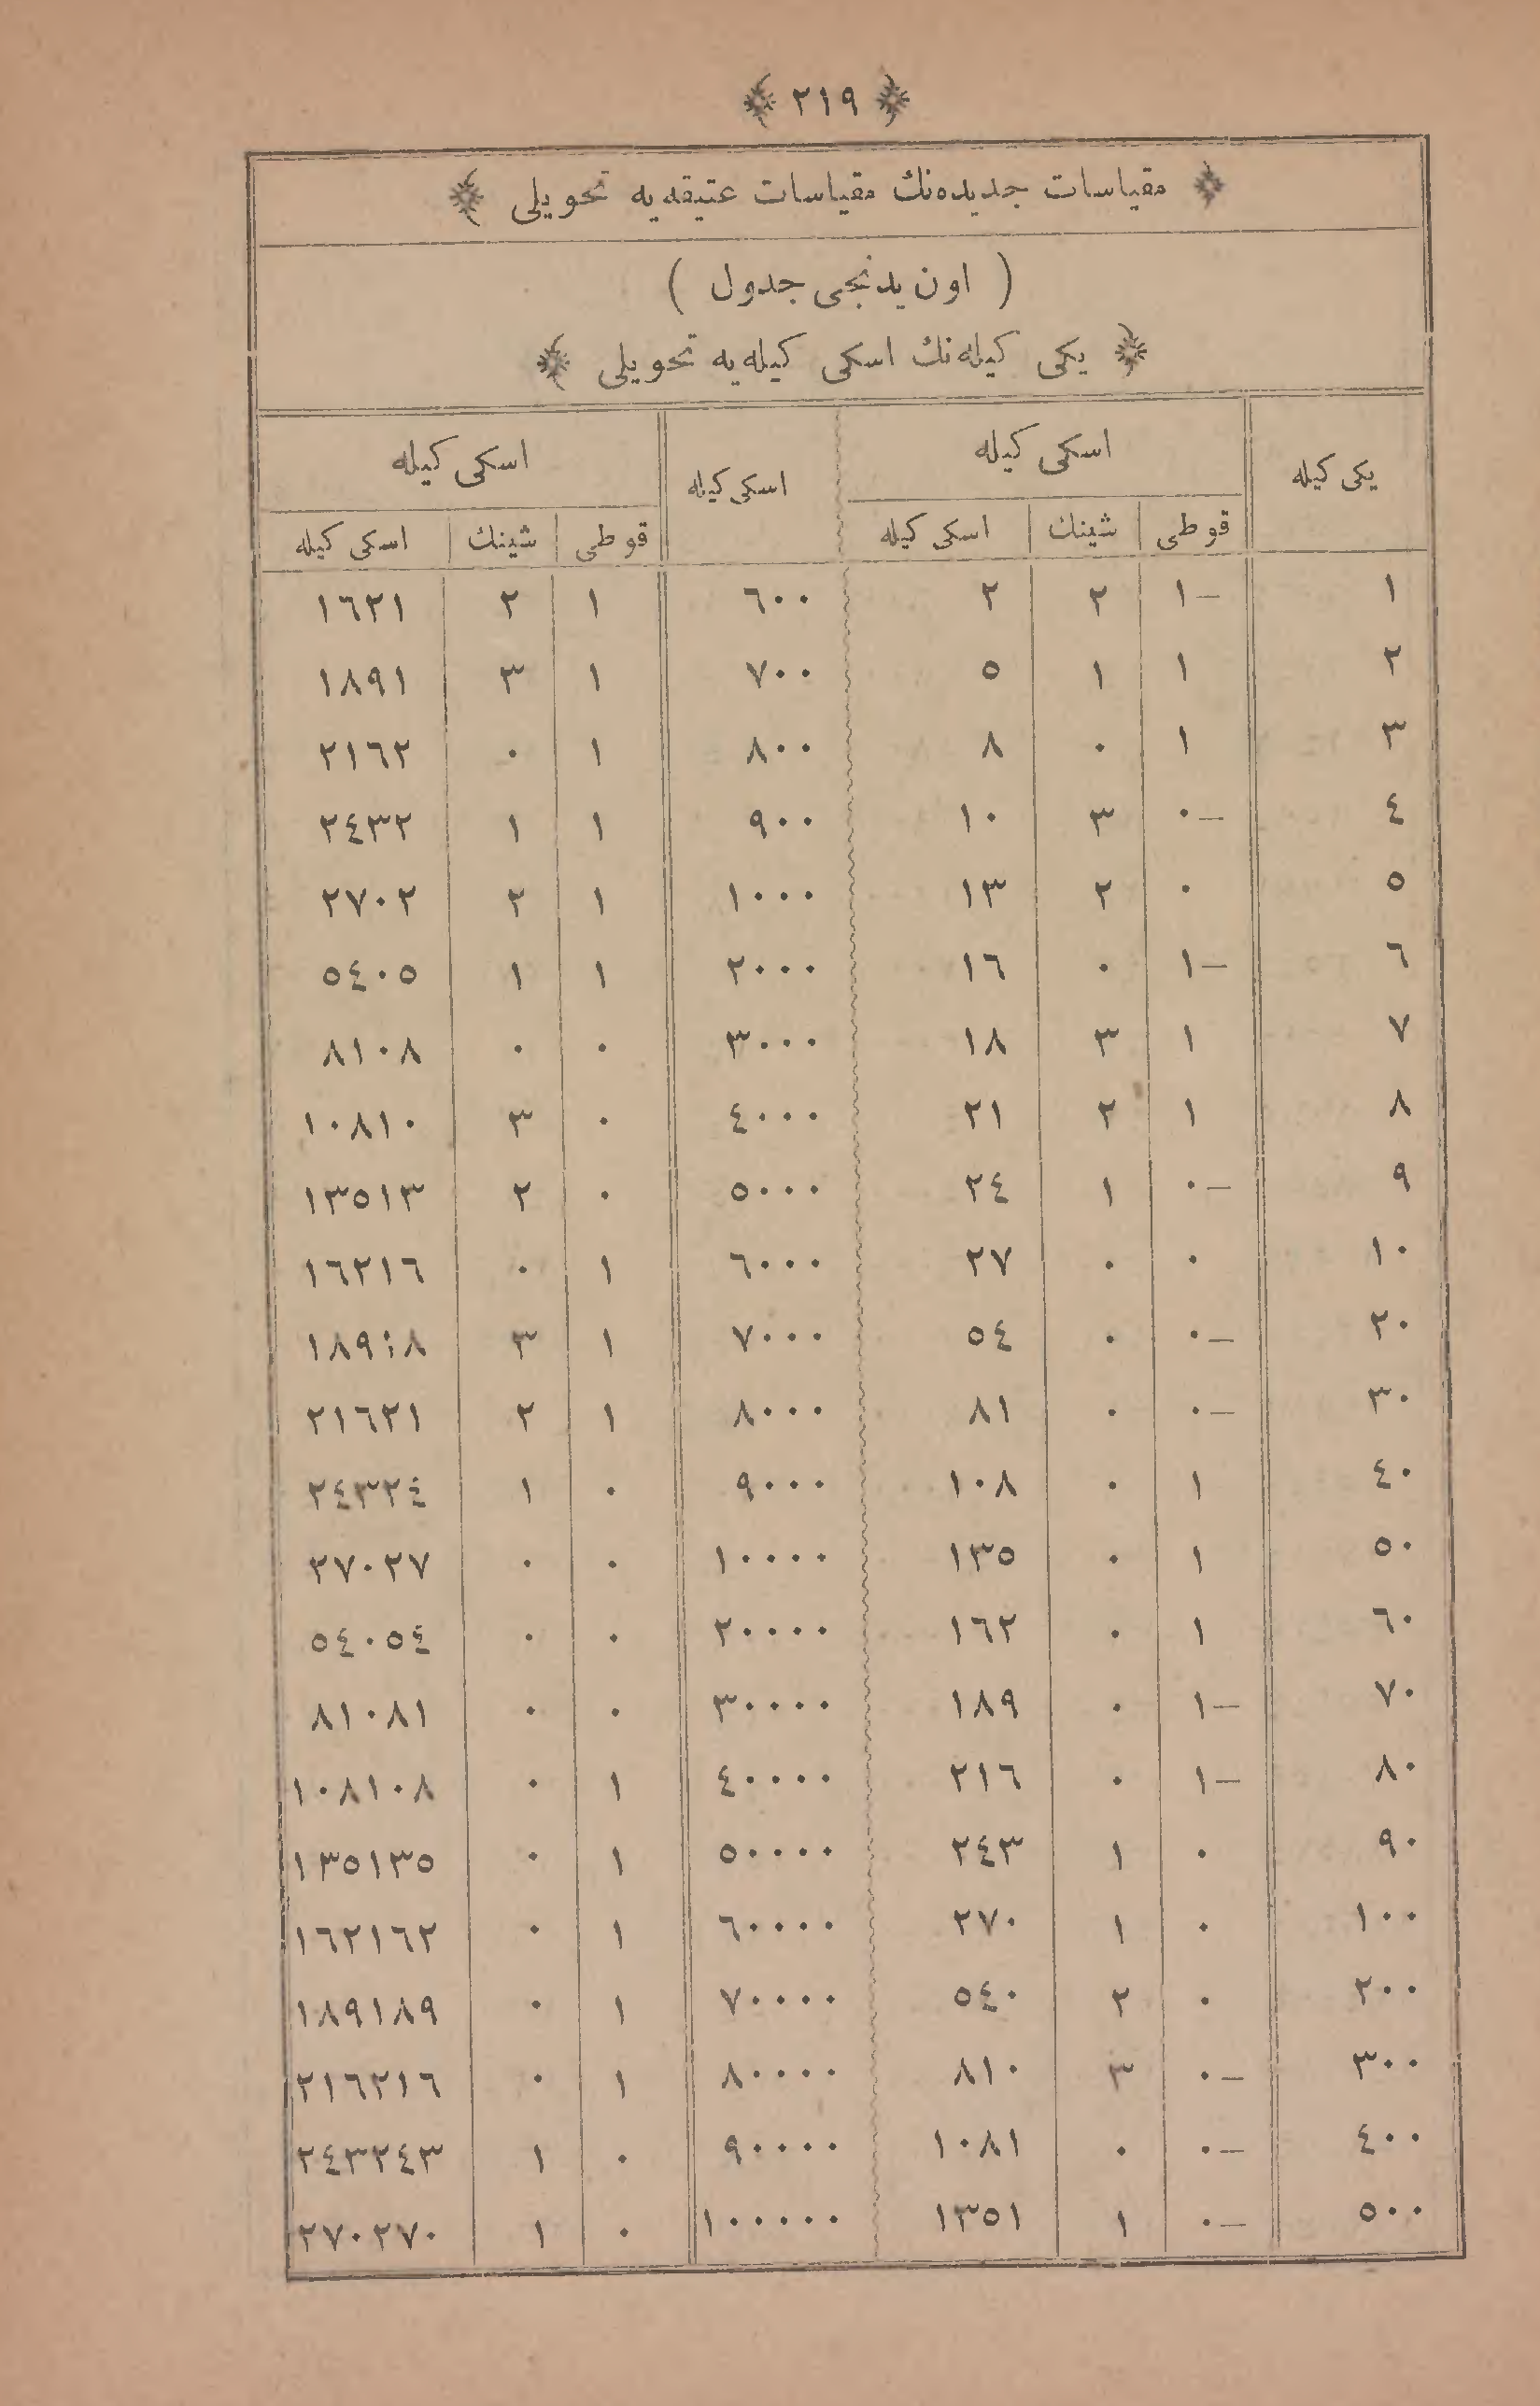 ﴿ ٢١٩ ﴾
﴿ مقياسات جديده‌نك مقياسات عتيقه‌يه تحويلى ﴾
( اون يدنجى جدول )
﴿ يكى كيله‌نك اسكى كيله‌يه تحويلى ﴾
يكى كيله اسكى كيله اسكى كيله اسكى كيله
قوطى شينك اسكى كيله قوطى شينك اسكى كيله
١ ١— ٢ ٢ ٦٠٠ ١ ٢ ١٦٢١
٢ ١ ١ ٥ ٧٠٠ ١ ٣ ١٨٩١
٣ ١ ٠ ٨ ٨٠٠ ١ ٠ ٢١٦٢
٤ ٠— ٣ ١٠ ٩٠٠ ١ ١ ٢٤٣٢
٥ ٠ ٢ ١٣ ١٠٠٠ ١ ٢ ٢٧٠٢
٦ ١— ٠ ١٦ ٢٠٠٠ ١ ١ ٥٤٠٥
٧ ١ ٣ ١٨ ٣٠٠٠ ٠ ٠ ٨١٠٨
٨ ١ ٢ ٢١ ٤٠٠٠ ٠ ٣ ١٠٨١٠
٩ ٠— ١ ٢٤ ٥٠٠٠ ٠ ٢ ١٣٥١٣
١٠ ٠ ٠ ٢٧ ٦٠٠٠ ١ ٠ ١٦٢١٦
٢٠ ٠— ٠ ٥٤ ٧٠٠٠ ١ ٣
٣٠ ٠— ٠ ٨١ ٨٠٠٠ ١ ٢ ٢١٦٢١
٤٠ ١ ٠ ١٠٨ ٩٠٠٠ ٠ ١ ٢٤٣٢٤
٥٠ ١ ٠ ١٣٥ ١٠٠٠٠ ٠ ٠ ٢٧٠٢٧
٦٠ ١ ٠ ١٦٢ ٢٠٠٠٠ ٠ ٠ ٥٤٠٥٤
٧٠ ١— ٠ ١٨٩ ٣٠٠٠٠ ٠ ٠ ٨١٠٨١
٨٠ ١— ٠ ٢١٦ ٤٠٠٠٠ ١ ٠ ١٠٨١٠٨
٩٠ ٠ ١ ٢٤٣ ٥٠٠٠٠ ١ ٠ ١٣٥١٣٥
١٠٠ ٠ ١ ٢٧٠ ٦٠٠٠٠ ١ ٠ ١٦٢١٦٢
٢٠٠ ٠ ٢ ٥٤٠ ٧٠٠٠٠ ١ ٠ ١٨٩١٨٩
٣٠٠ ٠— ٣ ٨١٠ ٨٠٠٠٠ ١ ٠ ٢١٦٢١٦
٤٠٠ ٠— ٠ ١٠٨١ ٩٠٠٠٠ ٠ ١ ٢٤٣٢٤٣
٥٠٠ ٠— ١ ١٣٥١ ١٠٠٠٠٠ ٠ ١ ٢٧٠٢٧٠